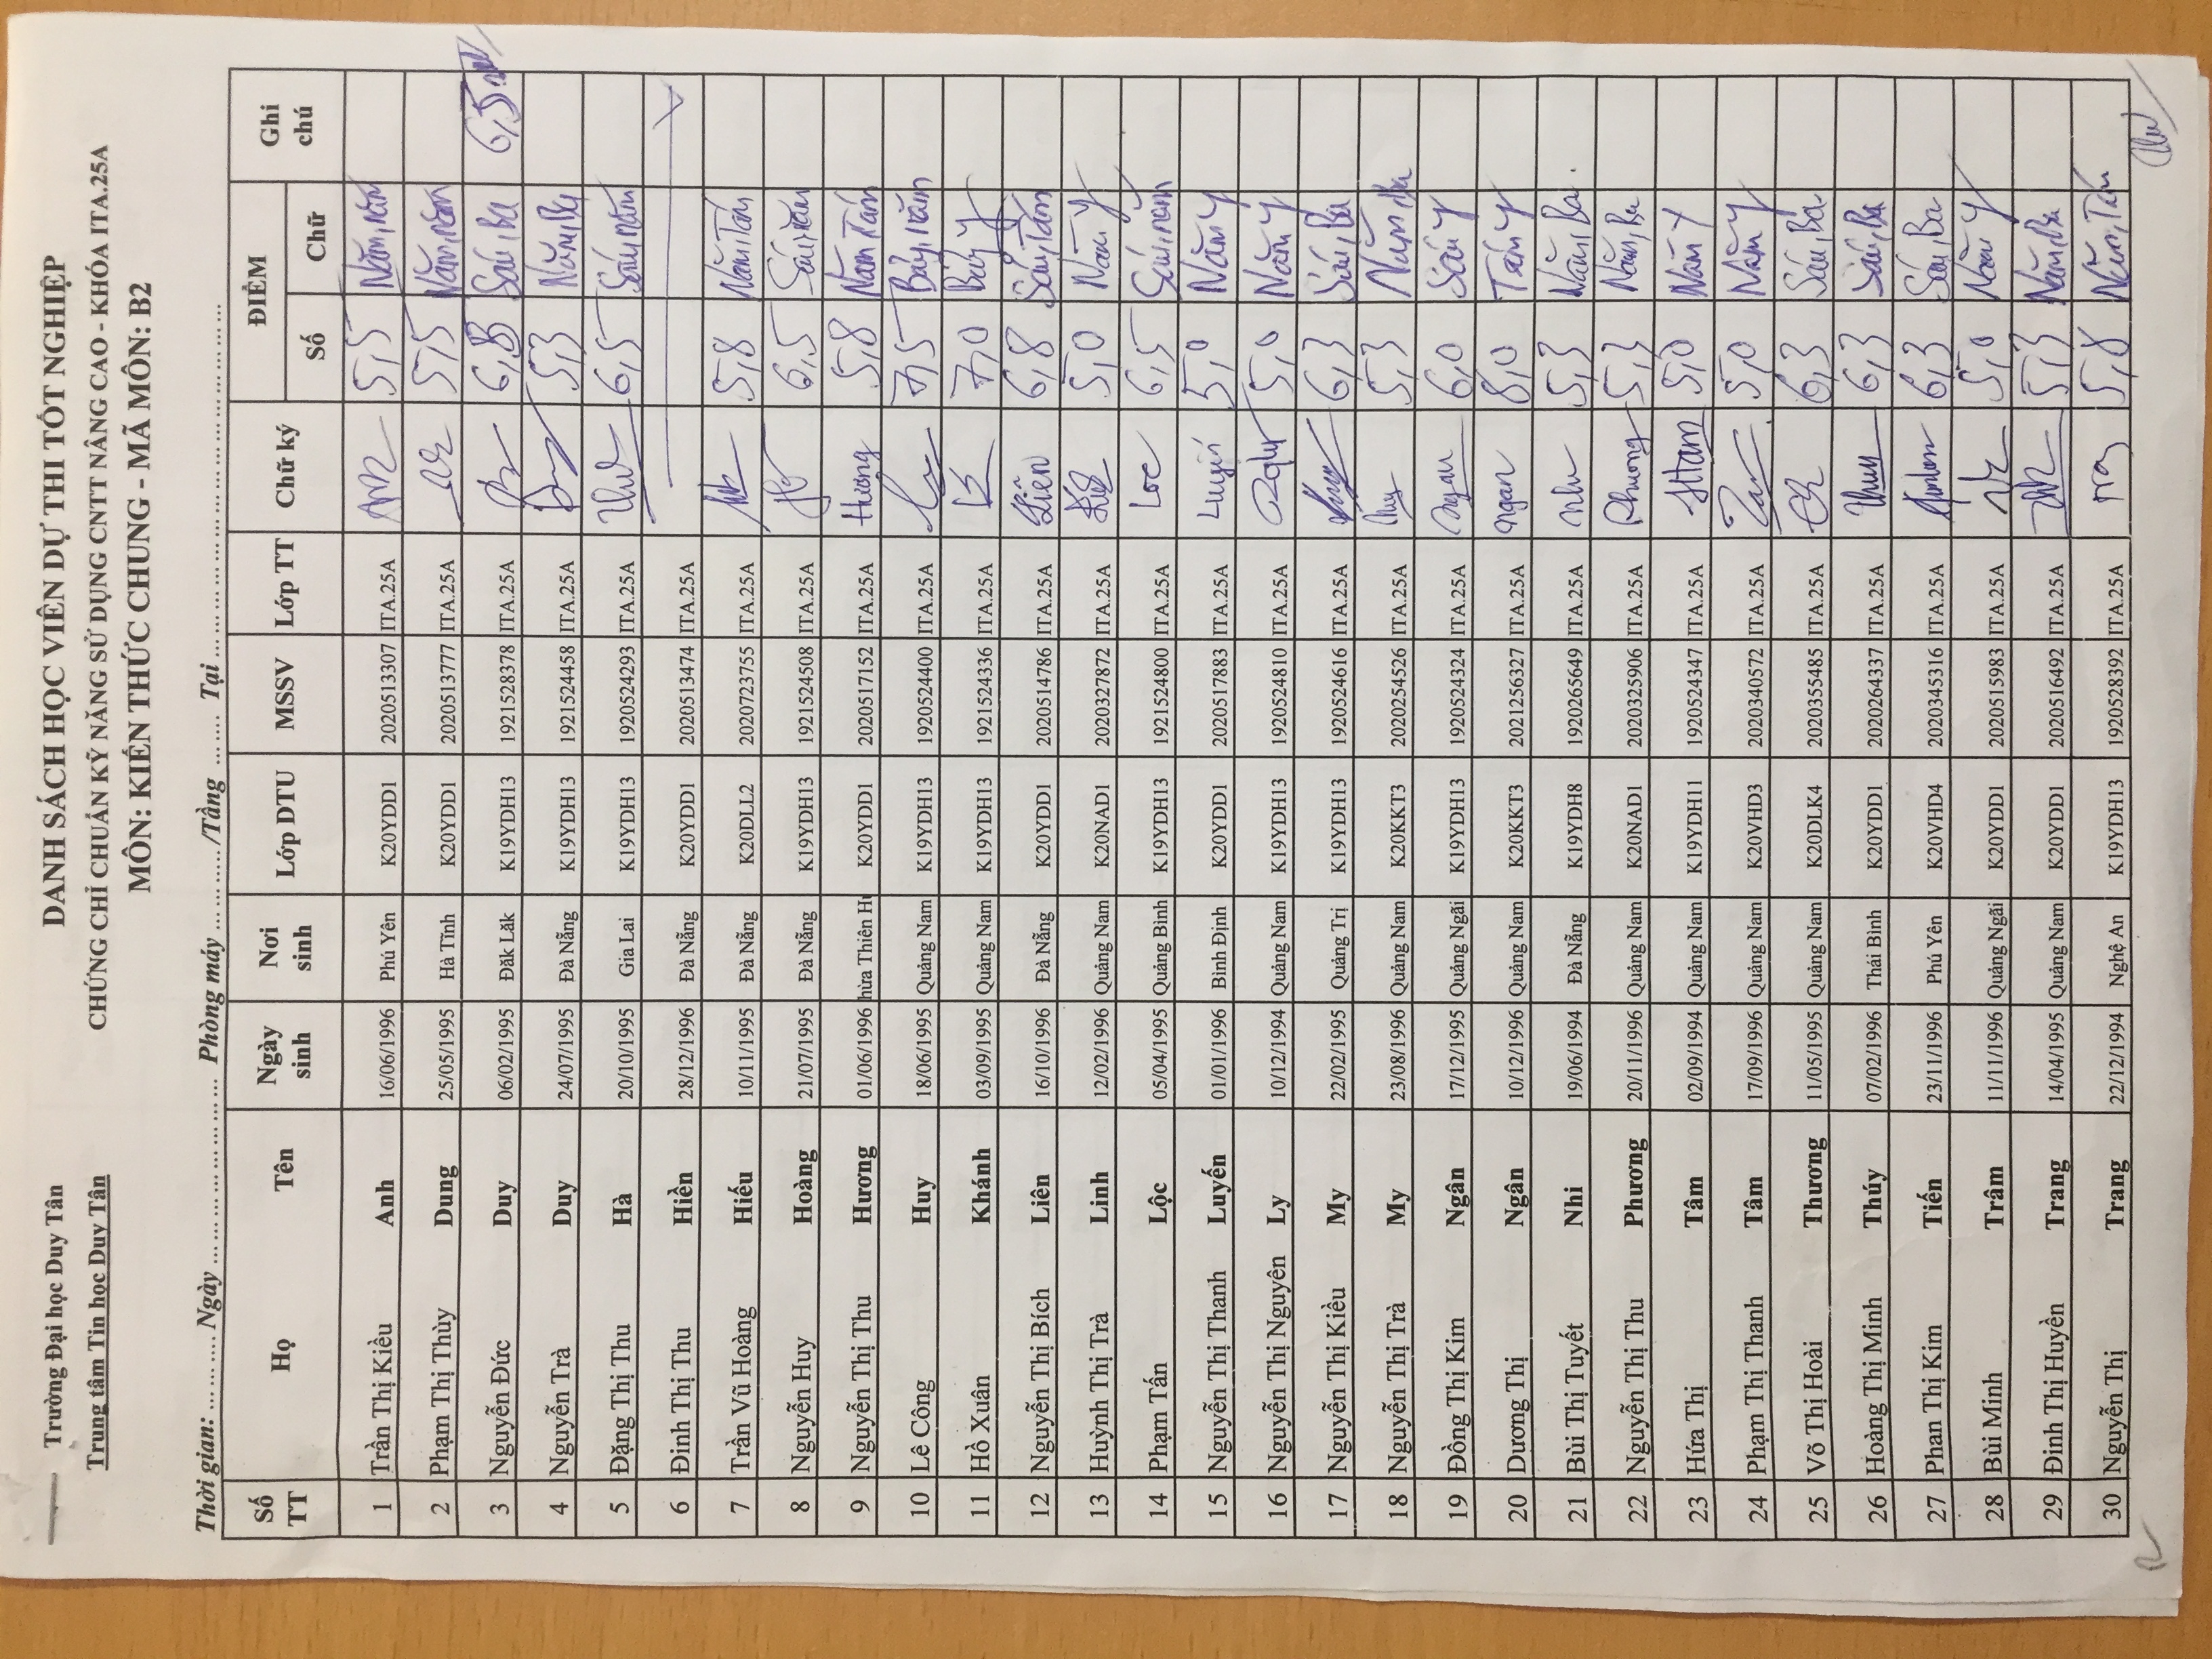 Trường Đại học Duy Tân
Trung tâm Tin học Duy Tân
DANH SÁCH HỌC VIÊN DỰ THI TỐT NGHIỆP
CHỨNG CHỈ CHUẨN KỸ NĂNG SỬ DỤNG CNTT NÂNG CAO - KHÓA ITA.25A
MÔN: KIẾN THỨC CHUNG - MÃ MÔN: B2
Thời gian: ... ... ... Ngày ... ... ... ... ... ... Phòng máy ... ... ... .../Tầng ... ... Tại ... ... ... ... ... ... ... ... ... ... ... ...
Số TT Họ Tên Ngày sinh Nơi sinh Lớp DTU MSSV Lớp TT Chữ ký ĐIỂM Số Chữ Ghi chú
1 Trần Thị Kiều Anh 16/06/1996 Phú Yên K20YDD1 2020513307 ITA.25A 5,5 Năm, năm
2 Phạm Thị Thùy Dung 25/05/1995 Hà Tĩnh K20YDD1 2020513777 ITA.25A 5,5 Năm, năm
3 Nguyễn Đức Duy 06/02/1995 Đăk Lăk K19YDH13 1921528378 ITA.25A Sáu, Ba 6,5
4 Nguyễn Trà Duy 24/07/1995 Đà Nẵng K19YDH13 1921524458 ITA.25A 5,3 Năm, Ba
5 Đặng Thị Thu Hà 20/10/1995 Gia Lai K19YDH13 1920524293 ITA.25A 6,5 Sáu, năm
6 Đinh Thị Thu Hiền 28/12/1996 Đà Nẵng K20YDD1 2020513474 ITA.25A
7 Trần Vũ Hoàng Hiếu 10/11/1995 Đà Nẵng K20DLL2 2020723755 ITA.25A 5,8 Năm, Tám
8 Nguyễn Huy Hoàng 21/07/1995 Đà Nẵng K19YDH13 1921524508 ITA.25A 6,5 Sáu, năm
9 Nguyễn Thị Thu Hương 01/06/1996 hừa Thiên Hu K20YDD1 2020517152 ITA.25A Hương 5,8 Năm Tám
10 Lê Công Huy 18/06/1995 Quảng Nam K19YDH13 1920524400 ITA.25A 7,5 Bảy, năm
11 Hồ Xuân Khánh 03/09/1995 Quảng Nam K19YDH13 1921524336 ITA.25A 7,0 Bảy y
12 Nguyễn Thị Bích Liên 16/10/1996 Đà Nẵng K20YDD1 2020514786 ITA.25A Liên 6,8 Sáu, Tám
13 Huỳnh Thị Trà Linh 12/02/1996 Quảng Nam K20NAD1 2020327872 ITA.25A 5,0 Năm y
14 Phạm Tấn Lộc 05/04/1995 Quảng Bình K19YDH13 1921524800 ITA.25A Loc 6,5 Sáu, năm
15 Nguyễn Thị Thanh Luyến 01/01/1996 Bình Định K20YDD1 2020517883 ITA.25A Luyến 5,0 Năm y
16 Nguyễn Thị Nguyên Ly 10/12/1994 Quảng Nam K19YDH13 1920524810 ITA.25A 5,0 Năm y
17 Nguyễn Thị Kiều My 22/02/1995 Quảng Trị K19YDH13 1920524616 ITA.25A 6,3 Sáu, Ba
18 Nguyễn Thị Trà My 23/08/1996 Quảng Nam K20KKT3 2020254526 ITA.25A 5,3 Năm, Ba
19 Đồng Thị Kim Ngân 17/12/1995 Quảng Ngãi K19YDH13 1920524324 ITA.25A Ngan 6,0 Sáu y
20 Dương Thị Ngân 10/12/1996 Quảng Nam K20KKT3 2021256327 ITA.25A Ngan 8,0 Tám y
21 Bùi Thị Tuyết Nhi 19/06/1994 Đà Nẵng K19YDH8 1920265649 ITA.25A 5,3 Năm, Ba.
22 Nguyễn Thị Thu Phương 20/11/1996 Quảng Nam K20NAD1 2020325906 ITA.25A Phuong 5,3 Năm, Ba
23 Hứa Thị Tâm 02/09/1994 Quảng Nam K19YDH11 1920524347 ITA.25A 5,0 Năm y
24 Phạm Thị Thanh Tâm 17/09/1996 Quảng Nam K20VHD3 2020340572 ITA.25A 5,0 Năm y
25 Võ Thị Hoài Thương 11/05/1995 Quảng Nam K20DLK4 2020355485 ITA.25A 6,3 Sáu, Ba
26 Hoàng Thị Minh Thúy 07/02/1996 Thái Bình K20YDD1 2020264337 ITA.25A Thuy 6,3 Sáu, Ba
27 Phan Thị Kim Tiến 23/11/1996 Phú Yên K20VHD4 2020345316 ITA.25A 6,3 Sáu, Ba
28 Bùi Minh Trâm 11/11/1996 Quảng Ngãi K20YDD1 2020515983 ITA.25A 5,0 Năm y
29 Đinh Thị Huyền Trang 14/04/1995 Quảng Nam K20YDD1 2020516492 ITA.25A 5,3 Năm, Ba
30 Nguyễn Thị Trang 22/12/1994 Nghệ An K19YDH13 1920528392 ITA.25A 5,8 Năm, Tám